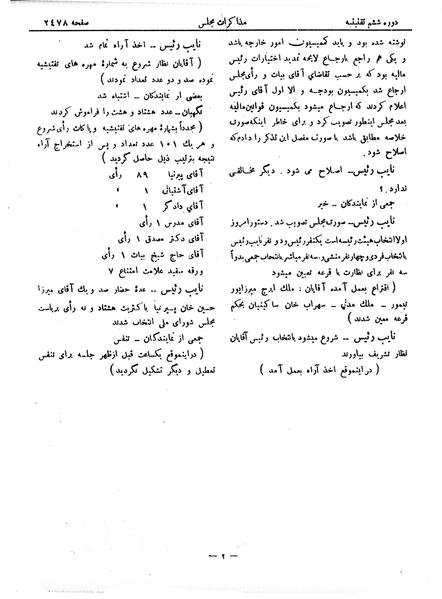 دوره ششم تقنینیه
مذاکرات مجلس
صفحه ۲۴۷۸
نوشته شده بود و باید کمیسیون امور خارجه باشد
و یکی هم راجع بارجاع لایحه تمدید اختیارات رئیس
مالیه بود که بر حسب تقاضای آقای بیات و رأی مجلس
ارجاع شد بکمیسیون بودجه و الا اول آقای رئیس
اعلام کردند که ارجاع میشود بکمیسیون قوانین مالیه
بعد مجلس اینطور تصویب کرد و برای خاطر اینکه صورت
خلاصه مطابق باشد با صورت مفصل این تذکر را دادم که
اصلاح شود .
نایب رئیس ـ اصلاح می شود . دیگر مخالفی
ندارد ؟
جمعی از نمایندگان ـ خیر
نایب رئیس ـ صورت مجلس تصویب شد . دستور امروز
اولا انتخاب هیئت رئیسه است یکنفر رئیس و دو نفر نایب رئیس
بانتخاب فردی و چهار نفر منشی و سه نفر مباشر بانتخاب جمعی بدواً
سه نفر برای نظارت با قرعه تعیین میشود
( اقتراع بعمل آمده آقایان : ملک ایرج میرزا پور
تیمور ـ ملک مدنی ـ سهراب خان ساکینیان بحکم
قرعه معین شدند )
نایب رئیس ـ شروع میشود بانتخاب رئیس آقایان
نظار تشریف بیاورند
( در اینموقع اخذ آراء بعمل آمد )
نایب رئیس ـ اخذ آراء تمام شد
( آقایان نظار شروع به شمارهٔ مهره های تفتیشیه
نموده صد و دو عدد تعداد نمودند )
بعضی از نمایندگان ـ اشتباه شد
نگهبان ـ عدد هشتاد و هشت را فراموش کردند
( مجدداً بشمارهٔ مهره های تفتیشیه و پاکات رأی شروع
و هر یک ۱۰۱ عدد تعداد و پس از استخراج آراء
نتیجه بترتیب ذیل حاصل گردید )
آقای پیرنیا ۸۹ رأی
آقای آشتیانی ۱ »
آقای دادگر ۱ »
آقای مدرس ۱ رأی
آقای دکتر مصدق ۱ رأی
آقای حاج شیخ بیات ۱ رأی
ورقه سفید علامت امتناع ۷
نایب رئیس ـ عدهٔ حضار صد و یک آقای میرزا
حسین خان پیرنیا باکثریت هشتاد و نه رأی بریاست
مجلس شورای ملی انتخاب شدند
جمعی از نمایندگان ـ تنفس
( در اینموقع یکساعت قبل از ظهر جلسه برای تنفس
تعطیل و دیگر تشکیل نگردید )
ـ ۲ ـ